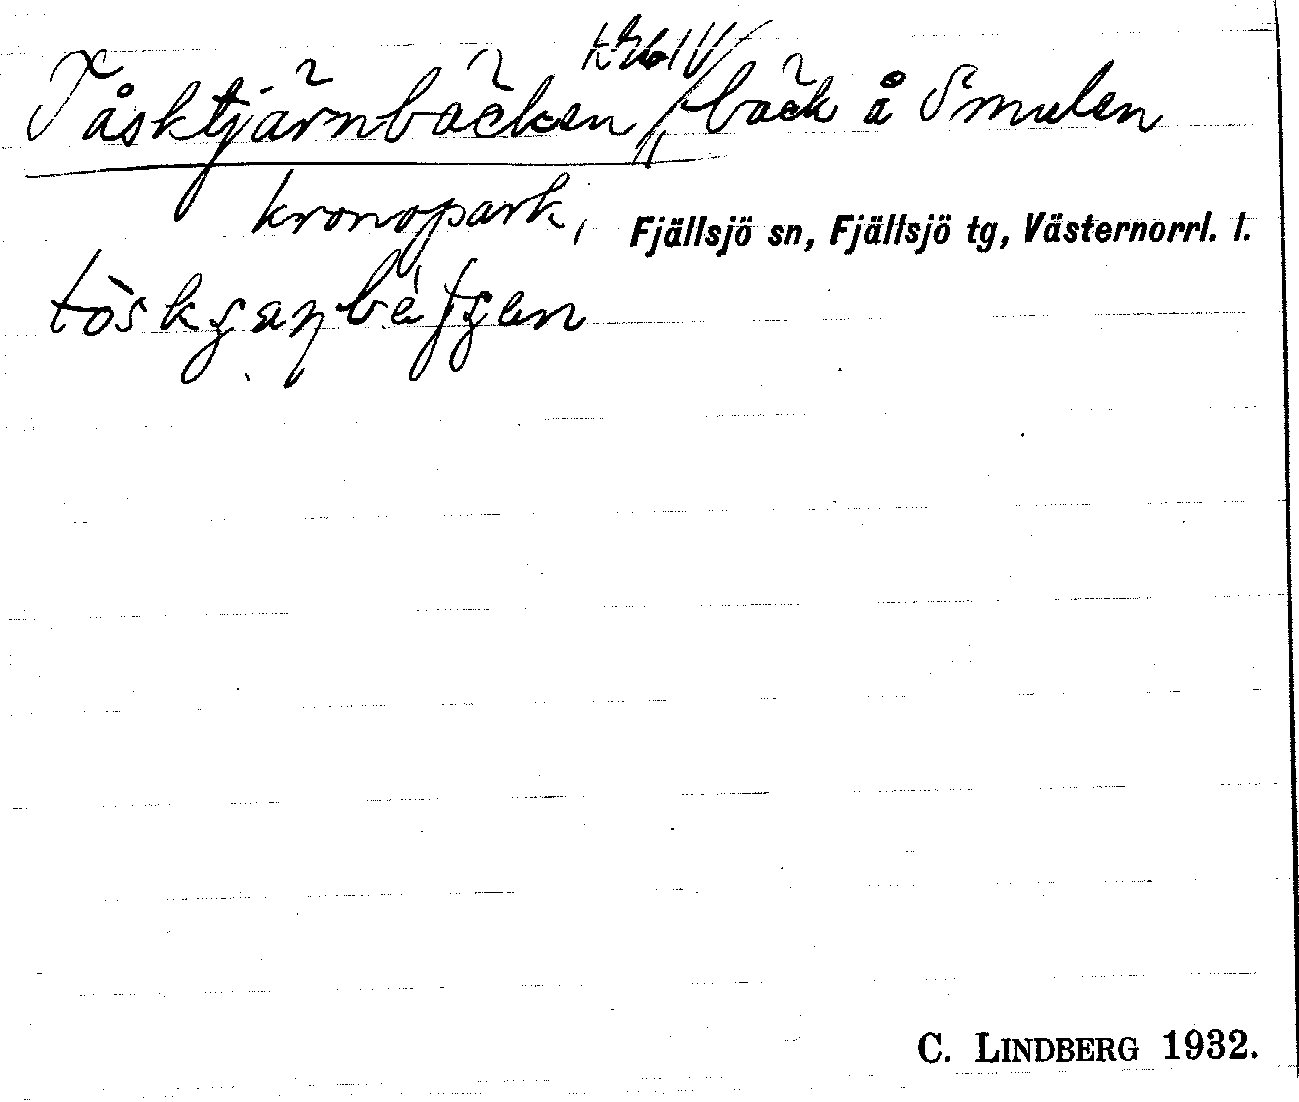 Tåsktjärnbäcken, bäck å Smulen
kronopark, Fjällsjö sn, Fjällsjö tg, Västernorrl. l.
C. LINDBERG 1932.